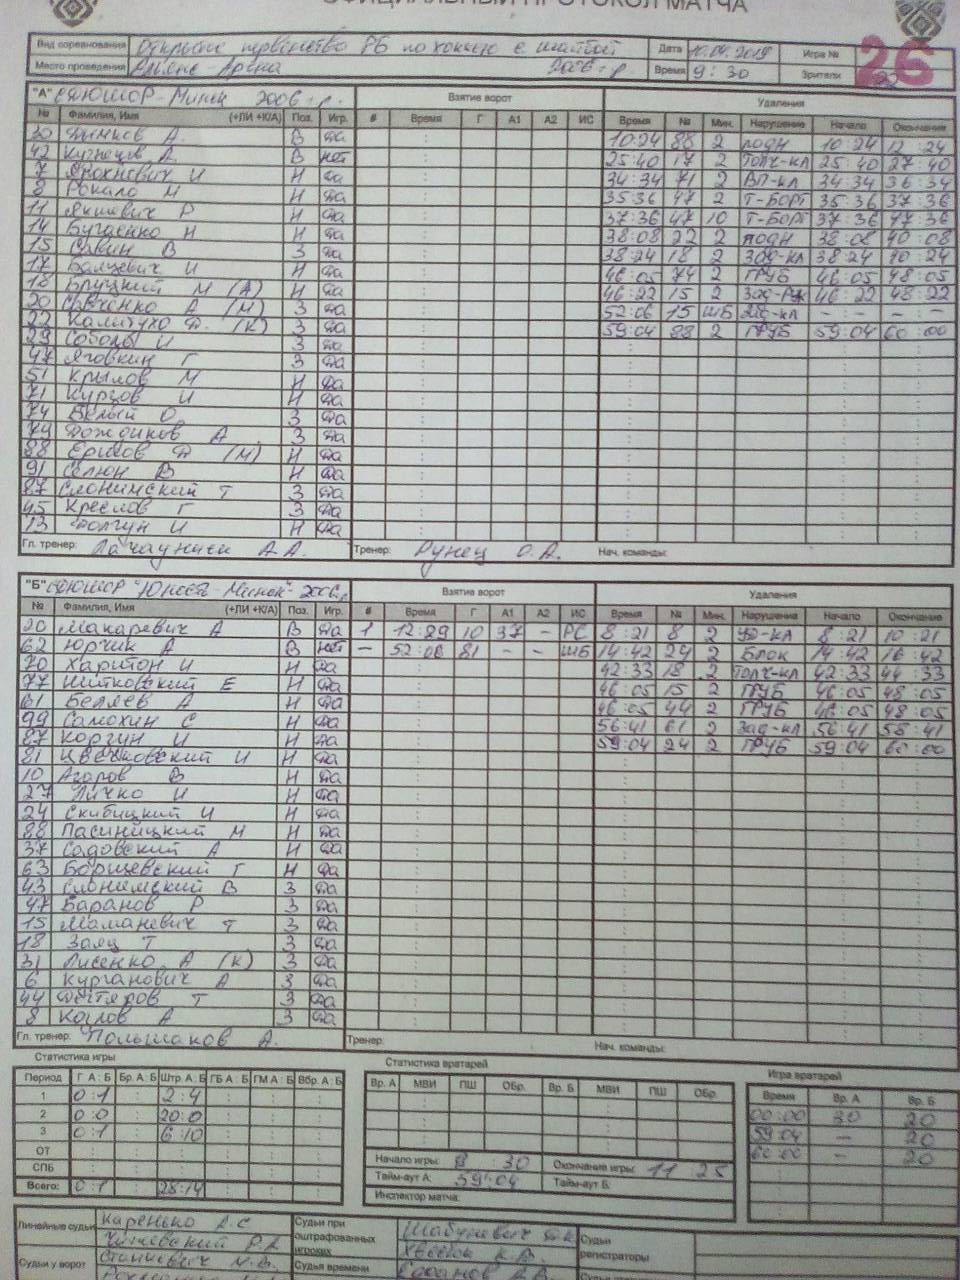 ОФИЦИАЛЬНЫЙ ПРОТОКОЛ МАТЧА
Вид соревнования Открытое первенство РБ по хоккею с шайбой Дата 10.04.2019 Игра № 26
Место проведения Альянс-Арена 2006 г.р. Время 9:30 Зрители
"А" СДЮШОР-Минск 2006 г.р. Взятие ворот Удаления
№ Фамилия, Имя (+ЛИ +К/А) Поз. Игр. # Время Г А1 А2 ИС Время № Мин. Нарушение Начало Окончание
30 А. В да 10:24 88 2 подн 10:24 12:24
42 Кузнецов А. В нет 25:40 17 2 Толч-кл 25:40 27:40
7 И Н да 34:34 71 2 34:34 36:34
8 Рокало М Н да 35:36 47 2 Т-Борт 35:36 37:36
11 Якшевич Р Н да 37:36 47 10 Т-Борт 37:36 47:36
14 Бугаенко Н Н да 38:08 22 2 подн 38:08 40:08
15 Савин В З да 38:24 18 2 Зад-кл 38:24 40:24
17 Балцевич И Н да 46:05 74 2 ГРУБ 46:05 48:05
18 Бруцкий М (А) Н да 46:22 15 2 46:22 48:22
20 Савченко А (М) З да 52:06 15 ШБ - - - -
22 Калитухо (К) З да 59:04 88 2 ГРУБ 59:04 60:00
29 Соболь И З да
47 Яговкин Г З да
51 Крылов М Н да
71 Курцов И Н да
74 Белый О. З да
79 Дождиков А З да
88 Ершов (М) Н да
91 Селюн В Н да
87 Слонимский Т З да
45 Креслов Г З да
13 Долгун И Н да
Гл. тренер: А.А. Тренер: Рунец О.А. Нач. команды:
"Б" СДЮШОР "Юность-Минск" 2006г.р. Взятие ворот Удаления
№ Фамилия, Имя (+ЛИ +К/А) Поз. Игр. # Время Г А1 А2 ИС Время № Мин. Нарушение Начало Окончание
20 Макаревич А В да 1 12:29 10 37 - РС 8:21 8 2 8:21 10:21
62 Юрчик А В нет - 52:06 81 - - ШБ 14:42 24 2 Блок 14:42 16:42
70 Харитон И Н да 42:33 18 2 Толч-кл 42:33 44:33
77 Шитковский Е Н да 46:05 15 2 ГРУБ 46:05 48:05
61 Беляев А Н да 46:05 44 2 ГРУБ 46:05 48:05
99 Самохин С Н да 56:41 61 2 Зад-кл 56:41 58:41
87 Коргин И Н да 59:04 24 2 ГРУБ 59:04 60:00
81 Цвечковский И Н да
10 Агапов В Н да
27 Личко И Н да
24 Скибицкий И Н да
88 Пасиницкий М Н да
37 Садовский А Н да
63 Борщевский Т Н да
43 Слонимский В З да
47 Баранов Р З да
15 Маманевич Т З да
18 Заяц Т З да
31 Лисенко А (К) З да
6 Курганович А З да
44 Дегтяров Т З да
8 Козлов А З да
Гл. тренер: Польшаков А. Тренер: Нач. команды:
Статистика игры Статистика вратарей Игра вратарей
Период Г А:Б Бр. А:Б Штр. А:Б ГБ А:Б ГМ А:Б Вбр. А:Б Вр. А МВИ ПШ Обр. Вр. Б МВИ ПШ Обр. Время Вр. А Вр. Б
1 0:1 2:4 00:00 30 20
2 0:0 20:0 59:04 - 20
3 0:1 6:10 60:00 - 20
ОТ
СПБ
Всего: 0:1 28:14
Начало игры: 9 30 Окончание игры: 11 25
Тайм-аут А: 59:04 Тайм-аут Б:
Инспектор матча:
Линейные судьи Каренько А.С Судьи при оштрафованных игроках Судьи регистраторы
Судьи у ворот Станкевич М.В. Хвесюк К.В.
Судья времени